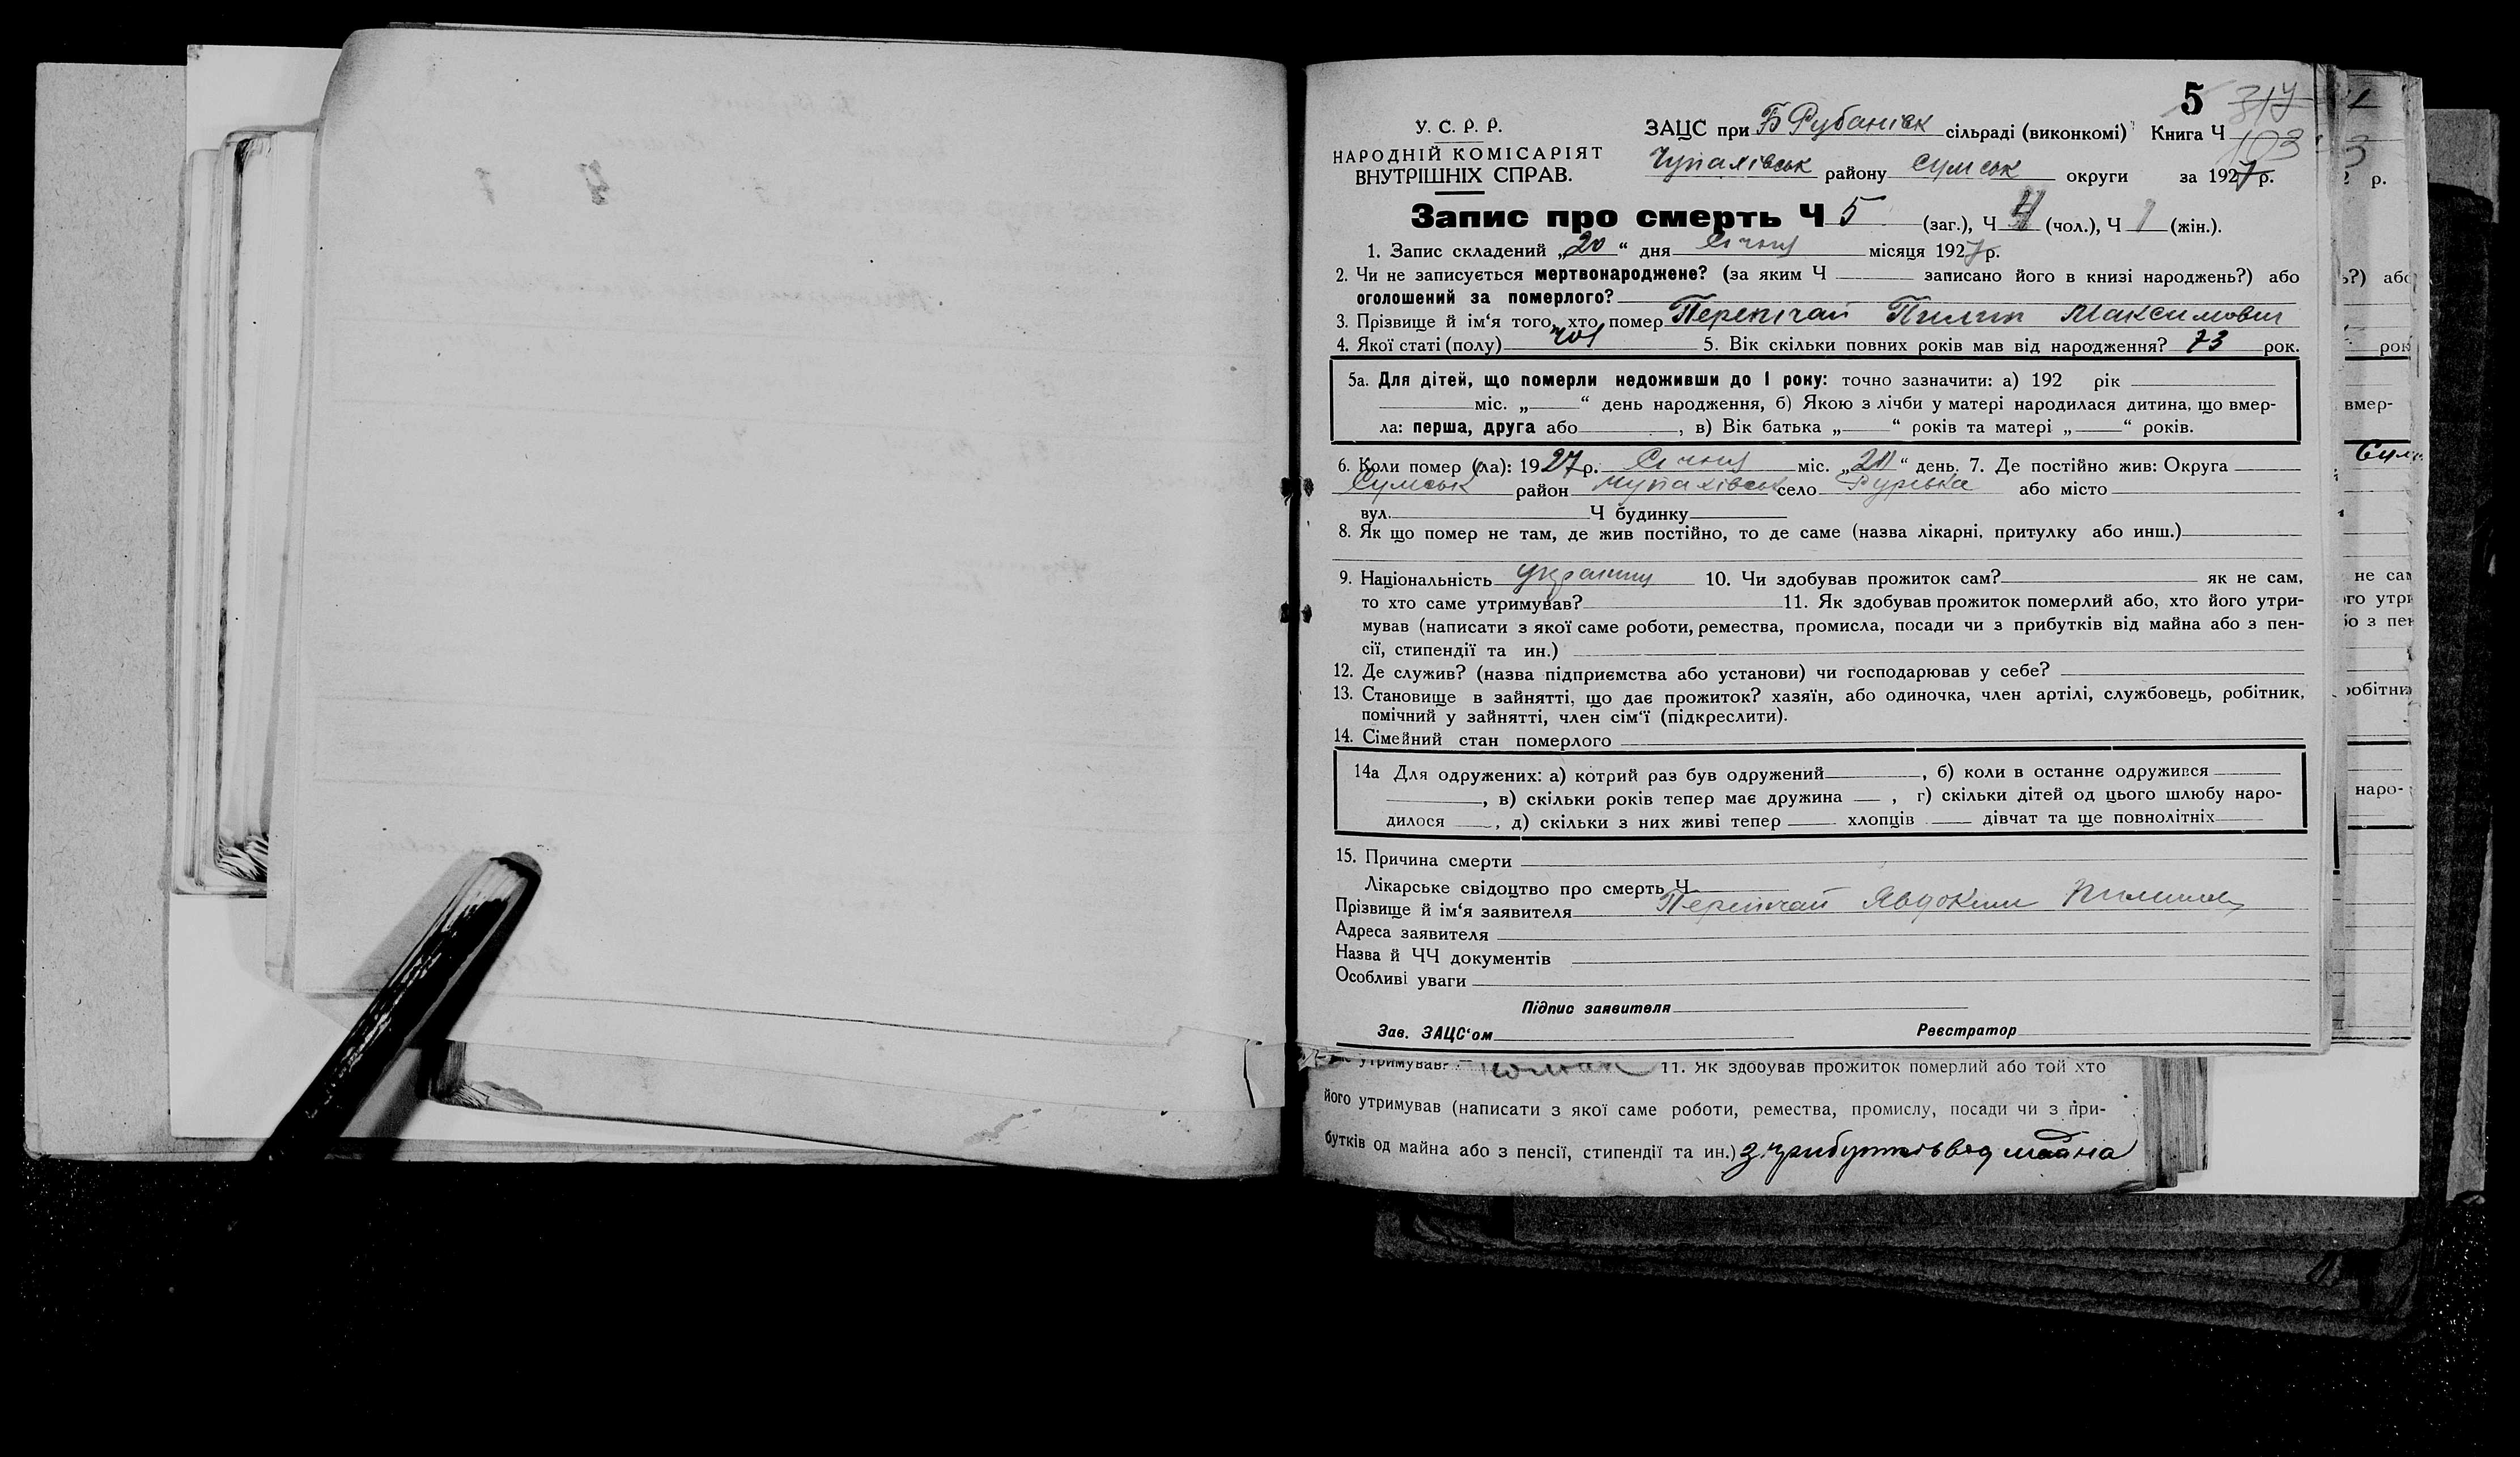 5 317
У. С. Р. Р.
НАРОДНІЙ КОМІСАРІЯТ
ВНУТРІШНІХ СПРАВ.
ЗАЦС при Б Рубанівськ сільраді (виконкомі) Книга Ч 103
Чупахівськ району Сумськ округи за 1927 р.
Запис про смерть Ч 5 (заг.), Ч 4 (чол.), Ч 1 (жін.).
1. Запис складений „20“ дня Січня місяця 1927 р.
2. Чи не записується мертвонароджене? (за яким Ч записано його в книзі народжень?) або
оголошений за померлого?
3. Прізвище й ім‘я того, хто помер Перепічай Пилип Максимович
4. Якої статі (полу) чол 5. Вік скільки повних років мав від народження? 73 рок.
5а. Для дітей, що померли недоживши до 1 року: точно зазначити: а) 192 рік
міс. „ “ день народження, б) Якою з лічби у матері народилася дитина, що вмер-
ла: перша, друга або , в) Вік батька „ “ років та матері „ “ років.
6. Коли помер (ла): 1927 р. Січня міс. „ “ день. 7. Де постійно жив: Округа
Сумськ район Чупахівськ село або місто
вул. Ч будинку
8. Як що помер не там, де жив постійно, то де саме (назва лікарні, притулку або инш.)
9. Національність українц 10. Чи здобував прожиток сам? як не сам,
то хто саме утримував? 11. Як здобував прожиток померлий або, хто його утри-
мував (написати з якої саме роботи, ремества, промисла, посади чи з прибутків від майна або з пен-
сії, стипендії та ин.)
12. Де служив? (назва підприємства або установи) чи господарював у себе?
13. Становище в зайнятті, що дає прожиток? хазяїн, або одиночка, член артілі, службовець, робітник,
помічний у зайнятті, член сім‘ї (підкреслити).
14. Сімейний стан померлого
14а Для одружених: а) котрий раз був одружений , б) коли в останнє одружився
, в) скільки років тепер має дружина , г) скільки дітей од цього шлюбу наро-
дилося , д) скільки з них живі тепер хлопців дівчат та ще повнолітніх
15. Причина смерти
Лікарське свідоцтво про смерть Ч
Прізвище й ім‘я заявителя Перепічай Явдоким Пилипов
Адреса заявителя
Назва й ЧЧ документів
Особливі уваги
Підпис заявителя
Зав. ЗАЦС‘ом Реєстратор
утримував? 11. Як здобував прожиток померлий або той хто
його утримував (написати з якої саме роботи, ремества, промислу, посади чи з при-
бутків од майна або з пенсії, стипендії та ин.) з прибутків від майна
р.
ь?) або
рок
вмер-
не сам
ого утри
бо з пен
робітник
наро-